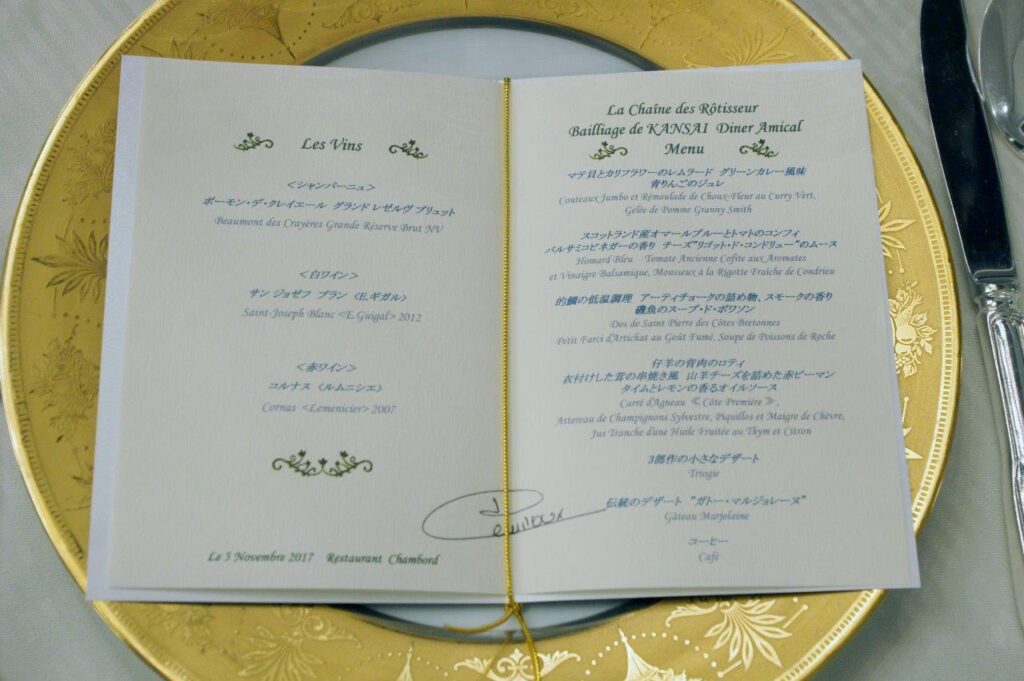 Les Vins
＜シャンパーニュ＞
ボーモン・デ・クレイエール グランド レゼルヴ ブリュット
Beaumont des Crayères Grande Réserve Brut NV
＜白ワイン＞
サン ジョゼフ ブラン ＜E.ギガル＞
Saint-Joseph Blanc <E.Guigal> 2012
＜赤ワイン＞
コルナス 〈ルムニシエ〉
Cornas <Lemenicier> 2007
Le 5 Novembre 2017 Restaurant Chambord
La Chaîne des Rôtisseur
Bailliage de KANSAI Diner Amical
Menu
マテ貝とカリフラワーのレムラード グリーンカレー風味
青りんごのジュレ
Couteaux Jumbo et Rémoulade de Choux-Fleur au Curry Vert,
Gelée de Pomme Granny Smith
スコットランド産オマールブルーとトマトのコンフィ
バルサミコビネガーの香り チーズ"リゴット・ド・コンドリュー"のムース
Homard Bleu Tomate Ancienne Cofite aux Aromates
et Vinaigre Balsamique, Mousseux à la Rigotte Fraîche de Condrieu
的鯛の低温調理 アーティチョークの詰め物、スモークの香り
磯魚のスープ・ド・ポワソン
Dos de Saint Pierre des Côtes Bretonnes
Petit Farci d'Artichat au Goût Fumé, Soupe de Poissons de Roche
仔羊の背肉のロティ
衣付けした茸の串焼き風 山羊チーズを詰めた赤ピーマン
タイムとレモンの香るオイルソース
Carré d'Agneau 《 Côte Première 》,
Attereau de Champignons Sylvestre, Piquillos et Maigre de Chèvre,
Jus Tranche d'une Huile Fruitée au Thym et Citron
3部作の小さなデザート
Triogie
伝統のデザート "ガトー・マルジョレーヌ"
Gâteau Marjolaine
コーヒー
Café